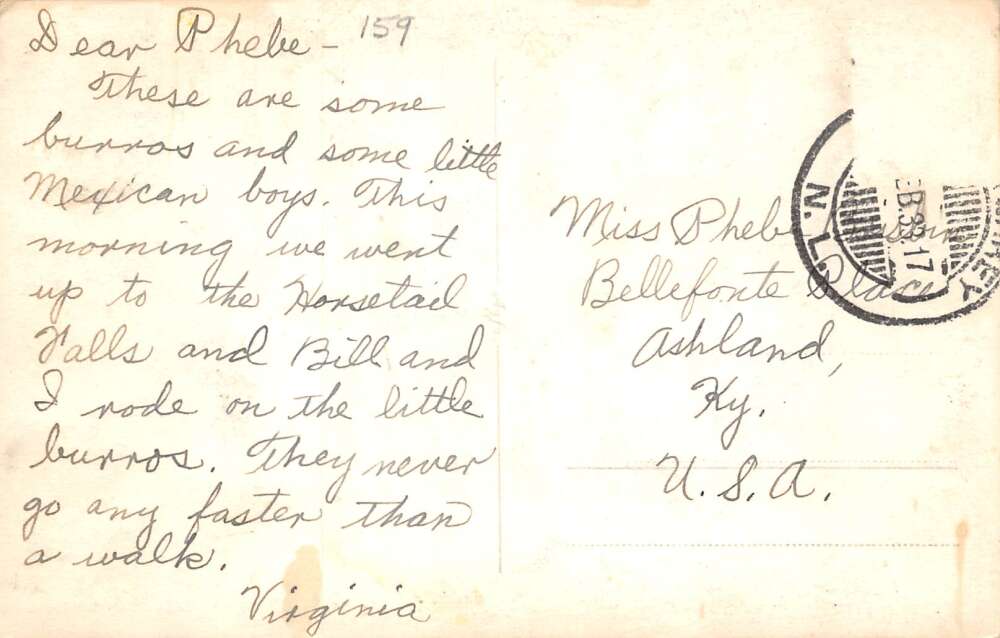 Dear Phebe – 159
These are some
burros and some little
Mexican boys. This
morning we went
up to the Horsetail
Falls and Bill and
I rode on the little
burros. They never
go any faster than
a walk.
Virginia
Miss Phebe
Bellefonte Place
Ashland,
Ky.
U.S.A.
N. L.
17